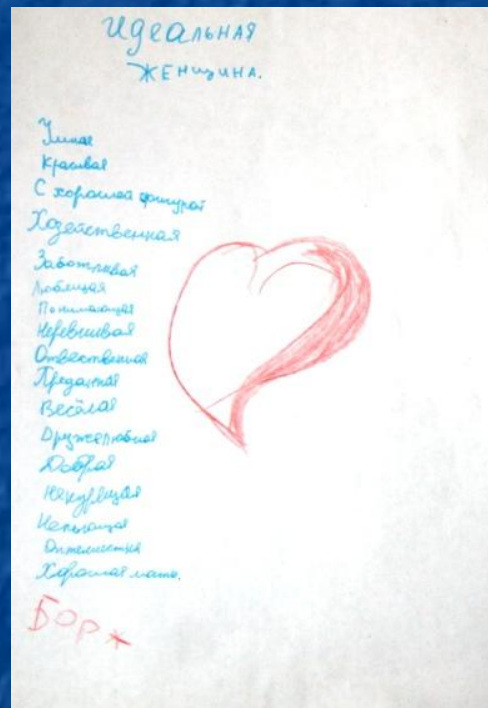 идеальная
женщина.
Умная
Красивая
С хорошей фигурой
Хозяйственная
Заботливая
Любящая
Понимающая
Неревнивая
Ответственная
Преданная
Весёлая
Дружелюбная
Добрая
Некурящая
Непьющая
Оптимистка
Хорошая мать.
Борж